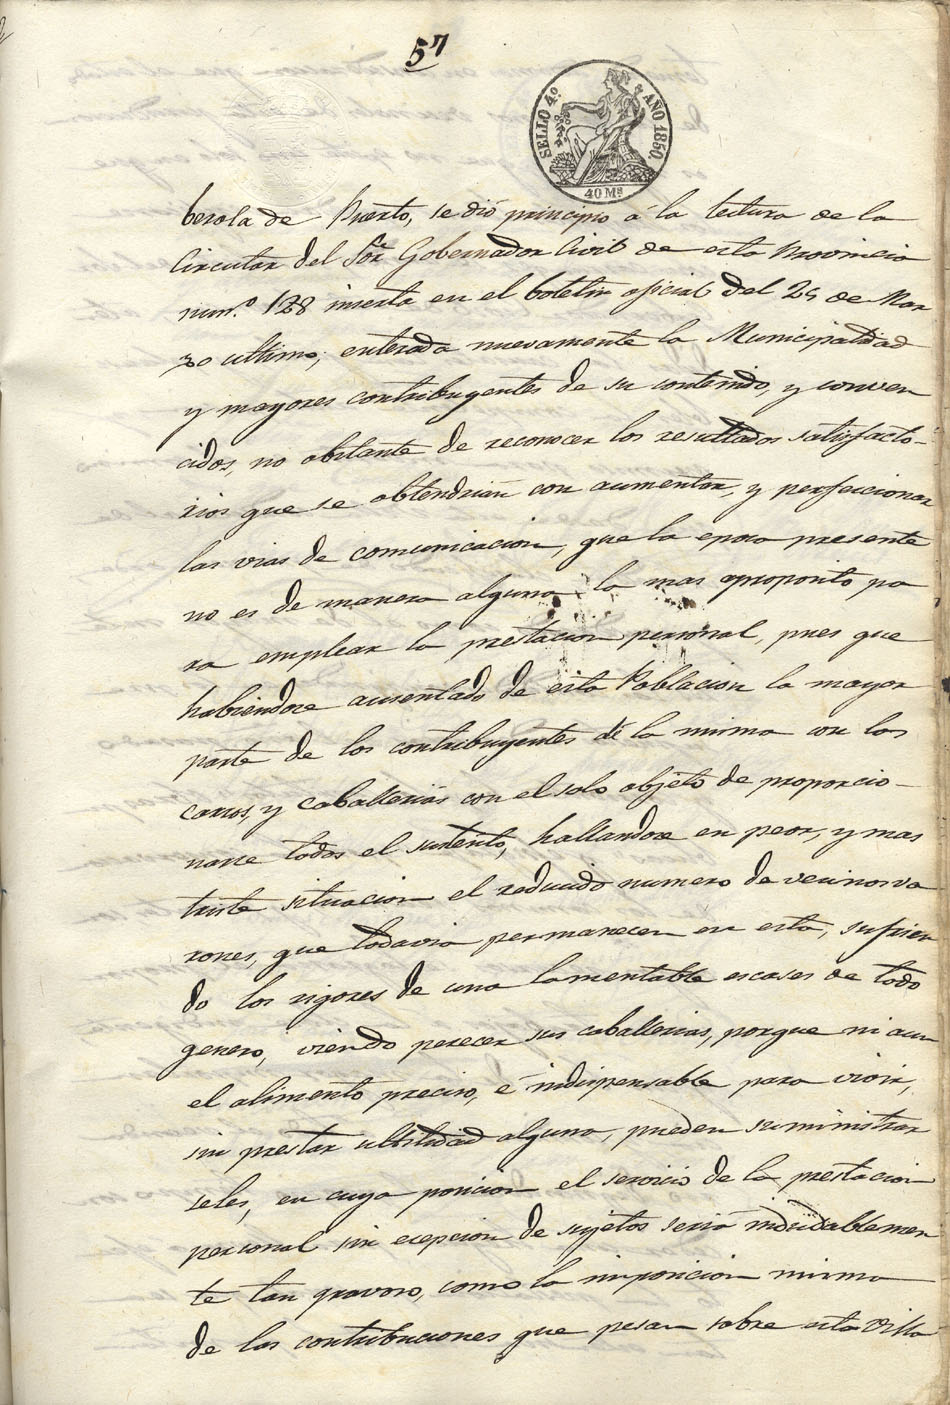 57
SELLO 4º. AÑO 1850.
40 Ms
berola de Puerto, se dió principio á la lectura de la
Circular del Sor. Gobernador Civil de esta Provincia
num.º 128 inserta en el boletin oficial del 25 de Mar
zo ultimo; enterada nuevamente la Municipalidad
y mayores contribuyentes de su contenido, y conven
cidos, no obstante de reconocer los resultados satisfacto-
rios que se obtendrian con aumentar, y perfeccionar
las vias de comunicacion, que la epoca presente
no es de manera alguna la mas aproposito pa
ra emplear la prestacion personal, pues que
habiendose ausentado de esta Poblacion la mayor
parte de los contribuyentes de la misma con los
carros, y caballerias con el solo objeto de proporcio-
narse todos el sustento, hallandose en peor, y mas
triste situacion el reducido numero de vecinos va
rones, que todavia permanecen en esta, sufrien
do los rigores de una lamentable escases de todo
genero, viendo perecer sus caballerias, porque ni aun
el alimento preciso, é indispensable para vivir,
sin prestar utilidad alguna, pueden suministrar
seles, en cuya posicion el servicio de la prestacion
personal sin ecepcion de sujetos seria indudablemen
te tan gravoso, como la imposicion misma
de las contribuciones que pesan sobre esta Villa